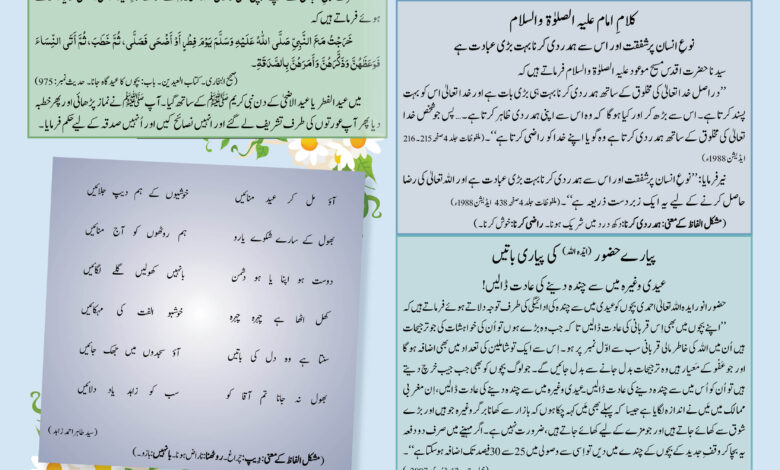 کلامِ امام علیہ الصلوٰۃ والسلام
نوعِ انسان پر شفقت اور اس سے ہمدردی کرنا بہت بڑی عبادت ہے
سیدنا حضرت اقدس مسیح موعود علیہ الصلوٰۃ والسلام فرماتے ہیں کہ
”دراصل خدا تعالیٰ کی مخلوق کے ساتھ ہمدردی کرنا بہت ہی بڑی بات ہے اور خدا تعالیٰ اس کو بہت
پسند کرتا ہے۔ اس سے بڑھ کر اور کیا ہو گا کہ وہ اس سے اپنی ہمدردی ظاہر کرتا ہے۔... پس جو شخص خدا
تعالیٰ کی مخلوق کے ساتھ ہمدردی کرتا ہے وہ گویا اپنے خدا کو راضی کرتا ہے“۔ (ملفوظات جلد 4 صفحہ 215۔216
ایڈیشن 1988ء)
نیز فرمایا: ”نوعِ انسان پر شفقت اور اس سے ہمدردی کرنا بہت بڑی عبادت ہے اور اللہ تعالیٰ کی رضا
حاصل کرنے کے لیے یہ ایک زبردست ذریعہ ہے“۔ (ملفوظات جلد 4 صفحہ 438 ایڈیشن 1988ء)
(مشکل الفاظ کے معنی: ہمدردی کرنا: دکھ درد میں شریک ہونا۔ راضی کرنا: خوش کرنا۔)
پیارے حضور (ایدہ اللہ) کی پیاری باتیں
عیدی وغیرہ میں سے چندہ دینے کی عادت ڈالیں!
حضور انور ایدہ اللہ تعالیٰ احمدی بچوں کو عیدی میں سے چندہ کی ادائیگی کی طرف توجہ دلاتے ہوئے فرماتے ہیں کہ
”اپنے بچوں میں بھی اس قربانی کی عادت ڈالیں تا کہ جب وہ بڑے ہوں تو اُن کی خواہشات کی جو ترجیحات
ہیں اُن میں اللہ کی خاطر مالی قربانی سب سے اوّل نمبر پر ہو۔ اِس سے ایک تو شاملین کی تعداد میں بھی اضافہ ہو گا
اور جو عَفْو کے معیار ہیں وہ ترجیحات بدل جانے سے بدل جائیں گے۔ جو لوگ بچوں کو بھی جب جیب خرچ دیتے
ہیں تو اُن کو اُس میں سے چندہ دینے کی عادت ڈالیں۔ عیدی وغیرہ میں سے چندہ دینے کی عادت ڈالیں، اِن مغربی
ممالک میں میں نے اندازہ لگایا ہے جیسا کہ پہلے بھی میں کہہ چکا ہوں کہ بازار سے کھانا برگر وغیرہ جو ہیں اور بڑے
شوق سے کھائے جاتے ہیں اور جو مزے کے لیے کھائے جاتے ہیں، ضرورت نہیں ہے۔ اگر مہینے میں صرف دو دفعہ
یہ بچا کر وقفِ جدید کے بچوں کے چندے میں دیں تو اِسی سے وصولی میں 25 سے 30 فیصد تک اضافہ ہو سکتا ہے“۔
ہوئے فرماتے ہیں کہ
خَرَجْتُ مَعَ النَّبِيِّ صَلَّى اللهُ عَلَيْهِ وَسَلَّمَ يَوْمَ فِطْرٍ أَوْ أَضْحَى فَصَلَّى، ثُمَّ خَطَبَ، ثُمَّ أَتَى النِّسَاءَ
فَوَعَظَهُنَّ وَذَكَّرَهُنَّ وَأَمَرَهُنَّ بِالصَّدَقَةِ۔
(صحیح البخاری۔ کتاب العیدین۔ باب: بچوں کا عید گاہ جانا۔ حدیث نمبر: 975)
میں عید الفطر یا عید الاضحیٰ کے دن نبی کریم ﷺ کے ساتھ گیا۔ آپ ﷺ نے نماز پڑھائی اور پھر خطبہ
دیا پھر آپ عورتوں کی طرف تشریف لے گئے اور انہیں نصائح کیں اور اُنہیں صدقہ کے لیے حکم فرمایا۔
آؤ مل کر عید منائیں خوشیوں کے ہم دیپ جلائیں
بھول کے سارے شکوے یارو ہم روٹھوں کو آج منائیں
دوست ہو اپنا یا ہو دشمن بانہیں کھولیں گلے لگائیں
کھل اٹھا ہے چہرہ چہرہ خوشبو الفت کی مہکائیں
سنتا ہے وہ دل کی باتیں آؤ سجدوں میں جھک جائیں
بھول نہ جانا تم آقا کو سب کو زاہد یاد دلائیں
(سید طاہر احمد زاہد)
(مشکل الفاظ کے معنی: دیپ: چراغ۔ روٹھنا: ناراض ہونا۔ بانہیں: بازو۔)